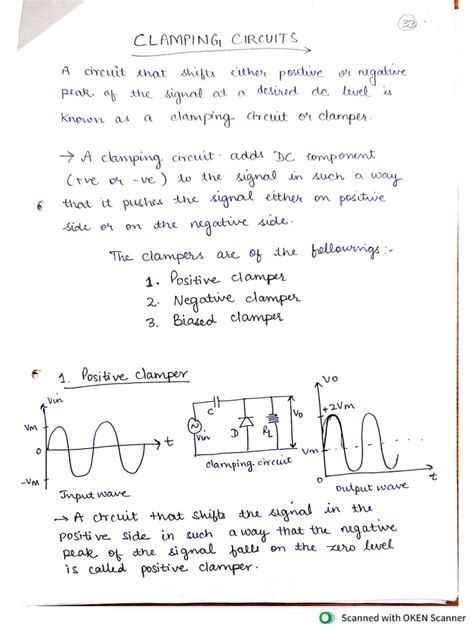 33
CLAMPING CIRCUITS
A circuit that shifts either positive or negative
peak of the signal at a desired dc level is
known as a clamping circuit or clamper.
→ A clamping circuit adds DC component
(+ve or -ve) to the signal in such a way
that it pushes the signal either on positive
side or on the negative side.
The clampers are of the followings:-
1. Positive clamper
2. Negative clamper
3. Biased clamper
1. Positive clamper
Vin
Vm
0
-Vm
t
Input wave
C
Vin
D
RL
Vo
clamping circuit
Vo
+2Vm
Vm
0
t
output wave
→ A circuit that shifts the signal in the
positive side in such a way that the negative
peak of the signal falls on the zero level
is called positive clamper.
Scanned with OKEN Scanner